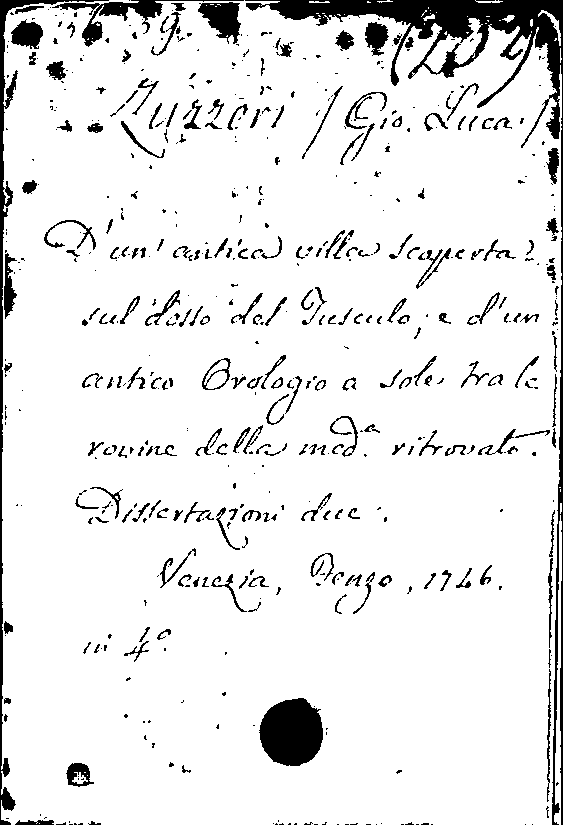 36. 59. (202)
Zuzzeri / Gio. Luca. /
D'un' antica villa scoperta
sul dosso del Tusculo; e d'un
antico Orologio a sole, tra le
rovine della med.ª ritrovato.
Dissertazioni due.
Venezia, Fenzo, 1746.
in 4º.